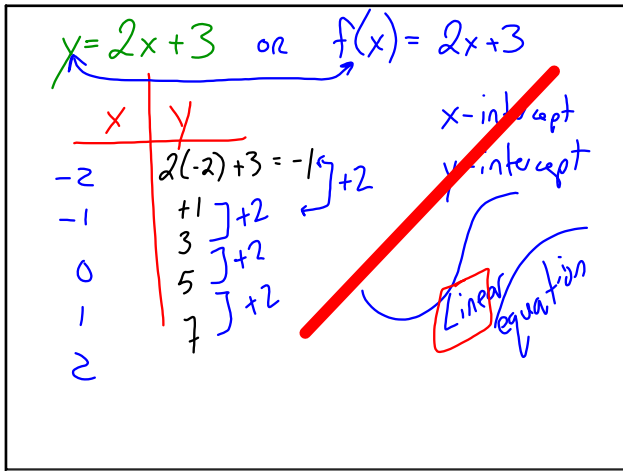 y = 2x + 3 or f(x) = 2x + 3
x y
-2 2(-2) + 3 = -1 +2
-1 +1 +2
0 3 +2
1 5 +2
2 7
x-intercept
y-intercept
Linear
equation